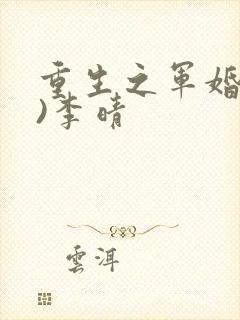 重生之軍婚
)李晴
雲洱